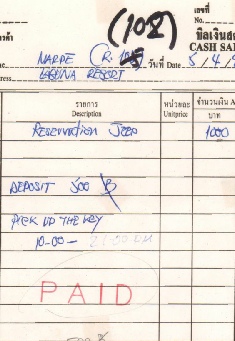 (108)
เลขที่
บิลเงินสด
CASH SA
วันที่ Date 5/4/
LAGUNA RESORT
รายการ
Description
หน่วยละ
Unitprice
จำนวนเงิน A
บาท
RESERVATION
1000
DEPOSIT 500 B
PICK UP THE KEY
10-00 -
PAID